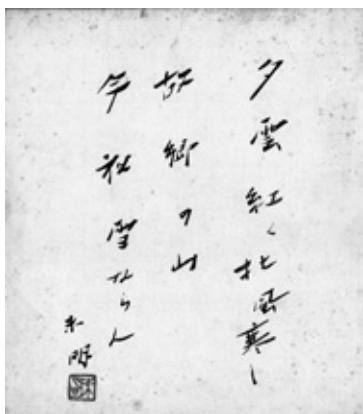 夕雲紅く北風寒し
故郷の山
今秋雪ならん
未明